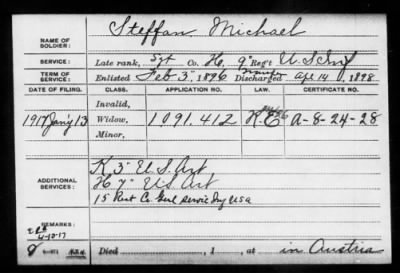 NAME OF SOLDIER: Steffan Michael
SERVICE: Late rank, Sgt Co. H, 9" Reg't U.S. Inf
TERM OF SERVICE: Enlisted Feb 3", 1896 Discharged Apr 14, 1898
DATE OF FILING. CLASS. APPLICATION NO. LAW. CERTIFICATE NO.
Invalid,
1917 Jan'y 13 Widow, 1091.412 A-8-24-28
Minor,
ADDITIONAL SERVICES: K 3" U.S. Art
H 7" U.S. Art
15 Rect Co. Genl Service Inf USA
REMARKS:
4-10-17
Died , 1 , at in Austria